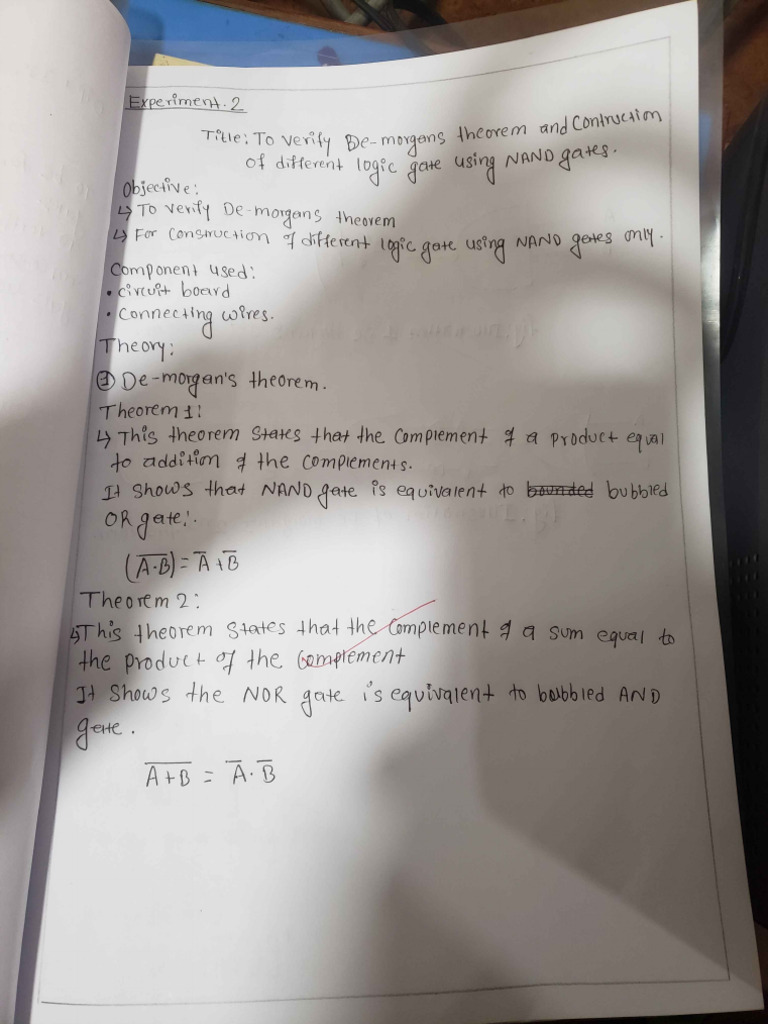 Experiment. 2
Title: To verify De-morgans theorem and Contruction
of different logic gate using NAND gates.
Objective:
↳ To verify De-morgans theorem
↳ For construction of different logic gate using NAND gates only.
Component used:
• circuit board
• Connecting wires.
Theory:
① De-morgan's theorem.
Theorem 1:
↳ This theorem states that the complement of a product equal
to addition of the complements.
It shows that NAND gate is equivalent to bounded bubbled
OR gate:.
(A̅·̅B̅) = A̅ + B̅
Theorem 2:
↳ This theorem states that the complement of a sum equal to
the product of the complement
It shows the NOR gate is equivalent to bubbled AND
gate.
A̅+̅B̅ = A̅ · B̅